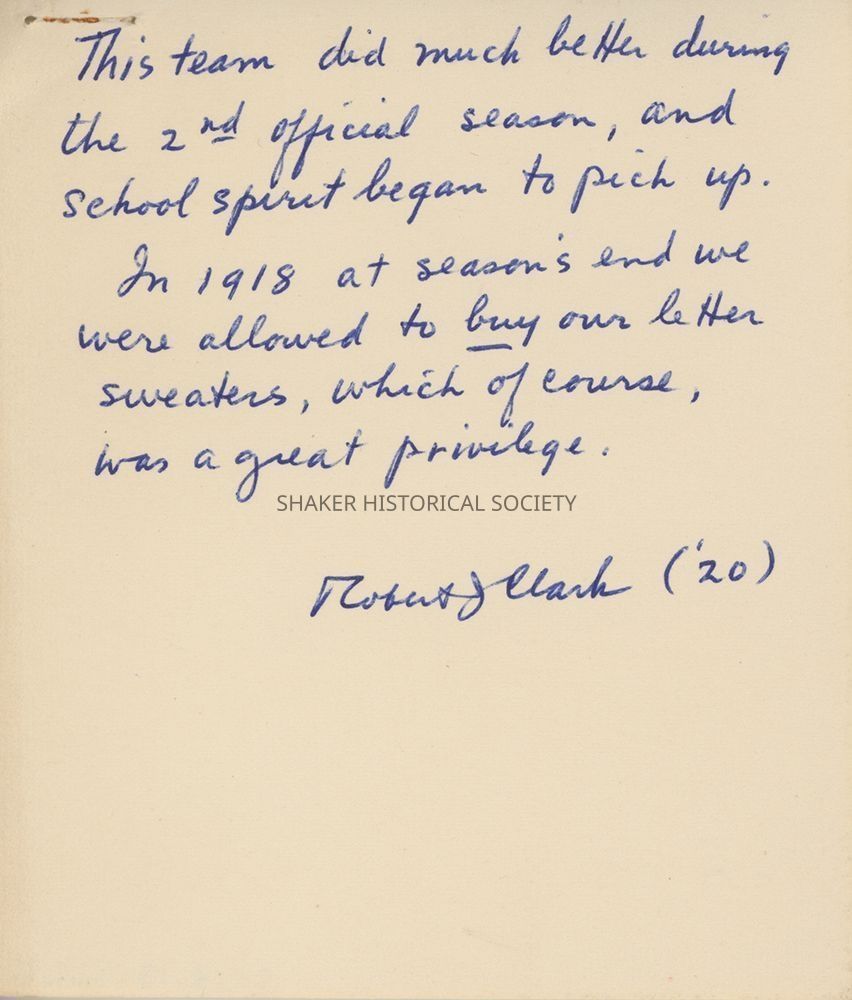 This team did much better during
the 2nd official season, and
school spirit began to pick up.
In 1918 at season's end we
were allowed to buy our letter
sweaters, which of course,
was a great privilege.
SHAKER HISTORICAL SOCIETY
Robert J Clark ('20)